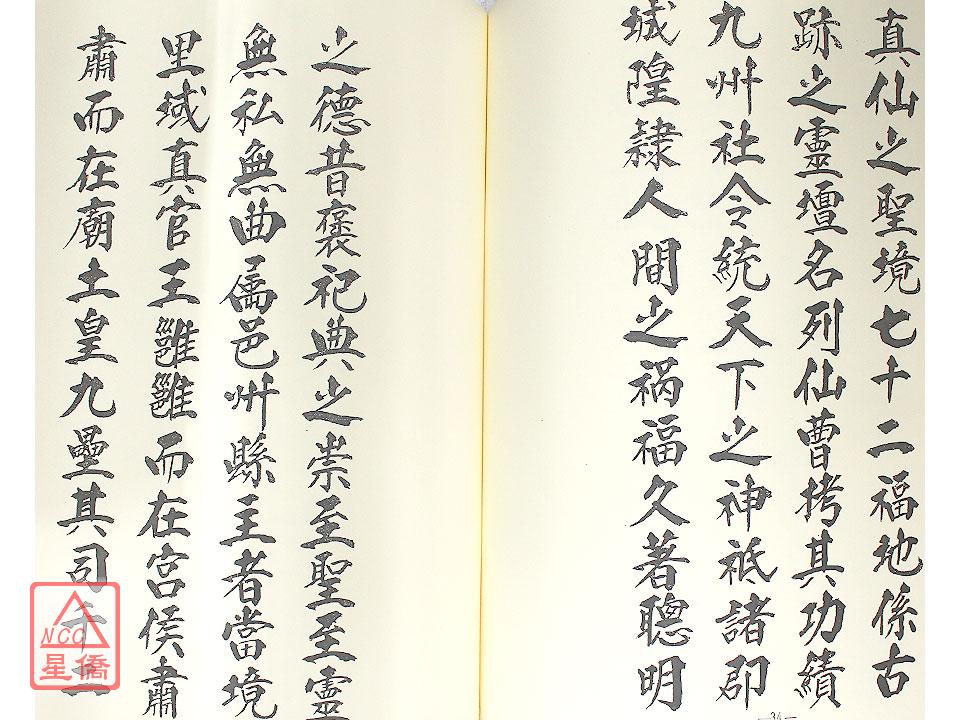 真仙之聖境七十二福地係古
跡之靈壇名列仙曹拷其功績
九州社令統天下之神祗諸郡
城隍隸人間之祸福久著聰明
之德昔褒祀典之崇至聖至靈
無私無曲屬邑州縣主者當境
里域真官王雝雝而在宮侯肅
肅而在廟土皇九壘其司千二
—34—
NCC
星僑